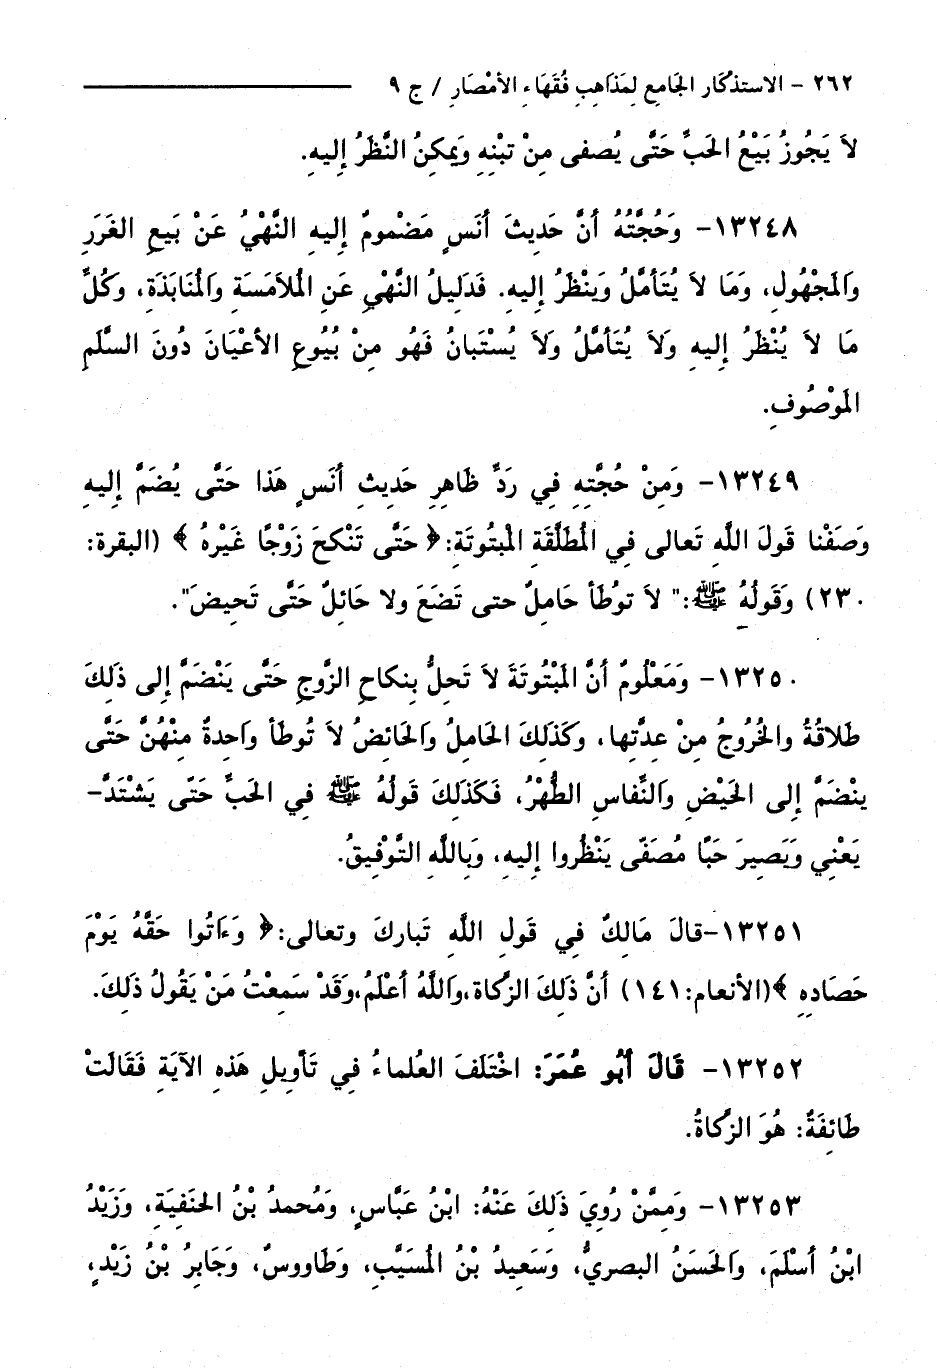 ٢٦٢ - الاستذكار الجَامِع لِمَذَاهِبِ فُقَهَاءِ الأمْصَارِ / ج ٩
لاَ يَجُوزُ بَيْعُ الحَبِّ حَتَّى يُصفى مِنْ تبْنِهِ وَيمكِنُ النَّظَرُ إِليهِ.
١٣٢٤٨- وَحُجَّتُهُ أنَّ حَدِيثَ أنَسٍ مَضْمومٌ إِليهِ النَّهْيُ عَنْ بَيعِ الغَرَرِ
وَالمَجْهُولِ، وَمَا لاَ يُتَأمَّلُ وَيَنْظَرُ إِليهِ. فَدَلِيلُ النَّهْي عَنِ الْمُلاَمَسَةِ وَالْمُنَابَذَةِ، وكُلِّ
مَا لاَ يُنْظَرُ إِليهِ وَلاَ يُتَأمَّلُ وَلاَ يُسْتَبانُ فَهُو مِنْ بُيُوعِ الأعْيَانَ دُونَ السَّلَمِ
الْمَوْصُوفِ.
١٣٢٤٩- وَمَنْ حُجَّتِهِ فِي رَدِّ ظَاهِرِ حَدِيثِ أنَسٍ هَذا حَتَّى يُضَمَّ إِليهِ
وَصَفْنا قَولَ اللَّهِ تَعالى فِي الْمُطَلَّقَةِ الْمَبْتُوتَةِ:﴿ حَتَّى تَنْكِحَ زَوْجًا غَيْرَهُ ﴾ (البقرة:
٢٣٠) وَقَولُهُ ﷺ:" لاَ توُطَأ حَامِلٌ حتى تَضَعَ ولا حَائِلٌ حَتَّى تَحِيضَ".
١٣٢٥٠- وَمَعْلُومٌ أنَّ الْمَبْتُوتَةَ لاَ تَحِلُّ بِنكاحِ الزَّوجِ حَتَّى يَنْضَمَّ إِلى ذَلِكَ
طَلاقُهُ والخُرُوجُ مِنْ عِدَّتِها، وكَذَلِكَ الحَامِلُ والحَائِضُ لاَ تُوطَأ وَاحِدةٌ مِنْهُنَّ حَتَّى
يِنْضَمَّ إِلى الحَيْضِ وَالنِّفاسِ الطُّهْرُ، فَكَذَلِكَ قَولُهُ ﷺ فِي الحَبِّ حَتَّى يَشْتَدَّ-
يَعْنِي وَيَصِيرَ حَبًا مُصَفّى يَنْظُروا إِليهِ، وَبِاللَّهِ التَّوْفِيقُ.
١٣٢٥١-قالَ مَالِكٌ فِي قَولِ اللَّهِ تَبارِكَ وتعالى:﴿ وَءَاتُوا حَقَّهُ يَوْمَ
حَصَادِهِ ﴾(الأنعام:١٤١) أنَّ ذَلِكَ الزَّكاة،وَاللَّهُ أعْلَمُ،وَقَدْ سَمِعْتُ مَنْ يَقُولُ ذَلِكَ.
١٣٢٥٢- قَالَ أبُو عُمَرَ: اخْتَلَفَ العُلماءُ فِي تَأوِيلِ هَذِهِ الآيَةِ فَقَالَتْ
طَائِفَةٌ: هُوَ الزَّكاةُ.
١٣٢٥٣- وَمِمَّنْ رُوِيَ ذَلِكَ عَنْهُ: ابْنُ عَبَّاسٍ، وَمُحمدُ بْنُ الحَنَفِيَةِ، وَزَيْدُ
ابْنُ أسْلَمَ، وَالحَسَنُ البصريُّ، وَسَعِيدُ بْنُ الْمُسَيَّبِ، وَطَاووسٌ، وَجَابِرُ بْنُ زَيْدٍ،